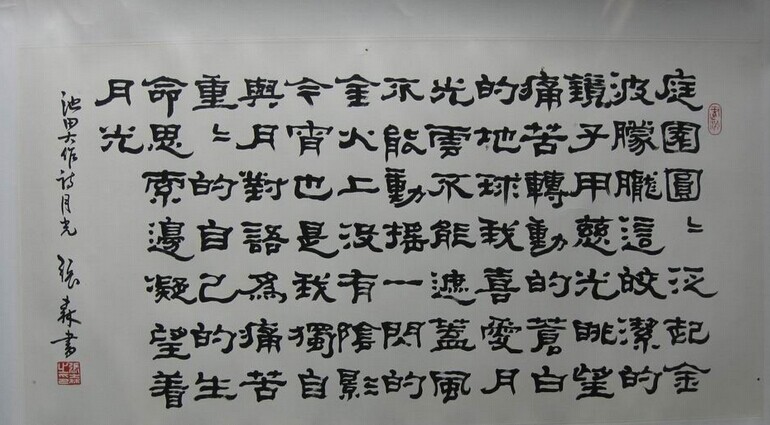 庭園圓〻泛起金
波朦朧這皎潔的
鏡子用慈光眺望
痛苦轉動的蒼白
的地球我喜愛月
光雲不能遮蓋風
不能動搖一閃的
金火上没有陰影
今宵也是我獨自
與月對語為痛苦
重〻的自己的生
命思索邊凝望着
月光
池田大作詩月光 張森書